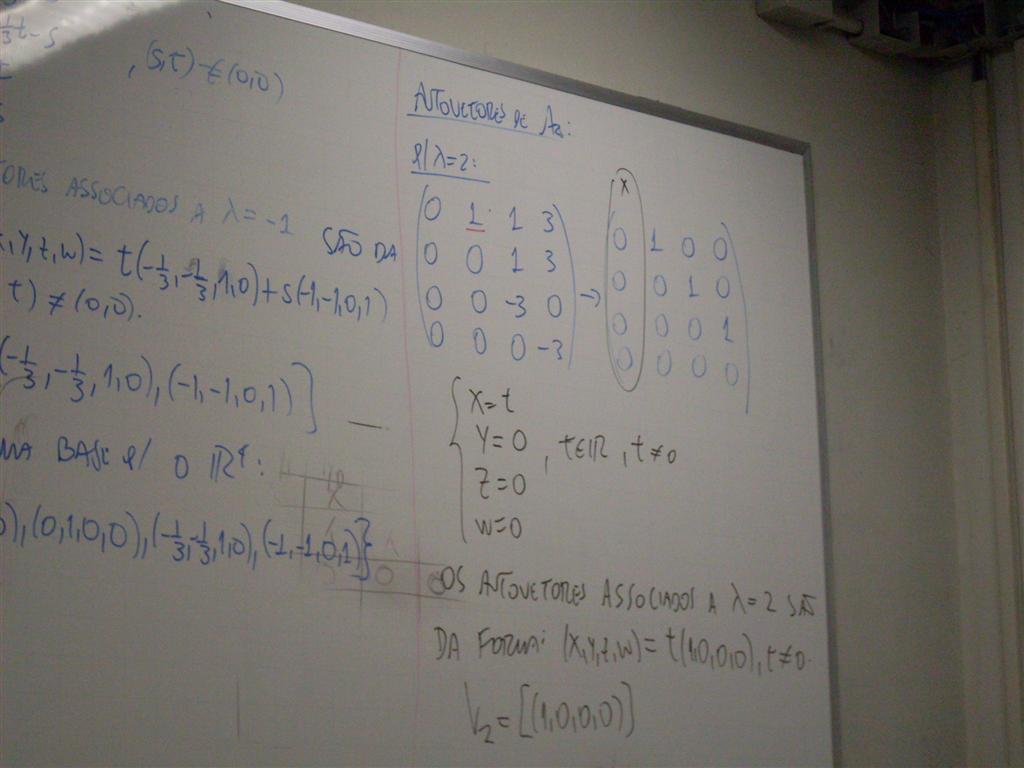 , (s,t) ≠ (0,0)
TORES ASSOCIADOS A λ = -1 SÃO DA
X,Y,t,w) = t(-1/3, -1/3, 1,0) + s(-1,-1,0,1)
t) ≠ (0,0).
(-1/3, -1/3, 1,0), (-1,-1,0,1)]
MA BASE p/ O ℝ⁴:
0), (0,1,0,0), (-1/3, -1/3, 1,0), (-1,-1,0,1)}
AUTOVETORES DE A₂:
p/ λ=2:
0 1 1 3
0 0 1 3
0 0 -3 0
0 0 0 -3
→
x
0 1 0 0
0 0 1 0
0 0 0 1
0 0 0 0
{ X = t
Y = 0 , t∈ℝ, t ≠ 0
Z = 0
w = 0
OS AUTOVETORES ASSOCIADOS A λ = 2 SÃO
DA FORMA: (X,Y,t,w) = t(1,0,0,0), t ≠ 0.
V₂ = [(1,0,0,0)]